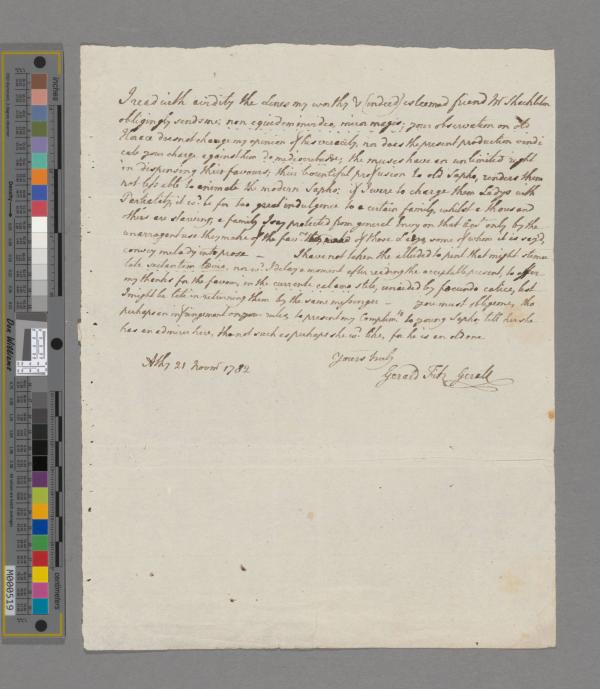 I read with avidity the lines my worthy & (indeed) esteemed friend Mr Shackleton
obligingly sends me; non equidem invideo, miror magis; your observation on old
Horace does not change my opinion of his veracity, nor does the present production vindi
cate your charge against him de mediocribus; the muses have an unlimited right
in dispensing their favours; their bountiful profusion to old Sapho, renders them
not less able to animate the modern Sapho; if I were to charge them Ladys with
Partiality, it is for too great indulgence to a certain family, whilst a thousand
others are starving; a family I say protected from general Envy on that acct only by the
unarrogant use they make of the of those Ladys, some of whom it is sayd,
convey melody into prose — I have not taken the alluded to pint that might stimu
late , nor wd I delay a moment after reading the acceptable present, to offer
my thanks for the favour, in the currente calamo stile, unaided by facundo calice, but
I might be late in returning them by the same messenger — you must oblige me, tho
perhaps an infringement on your rules, to present my Complimts to young Sapho, tell her she
has an admirer here, tho not such as perhaps she wd like, for he is an old one
Yours truly
Athy 21 Novr 1782
Gerald Fitz Gerald
inches
centimetres
Don Williams
M000519